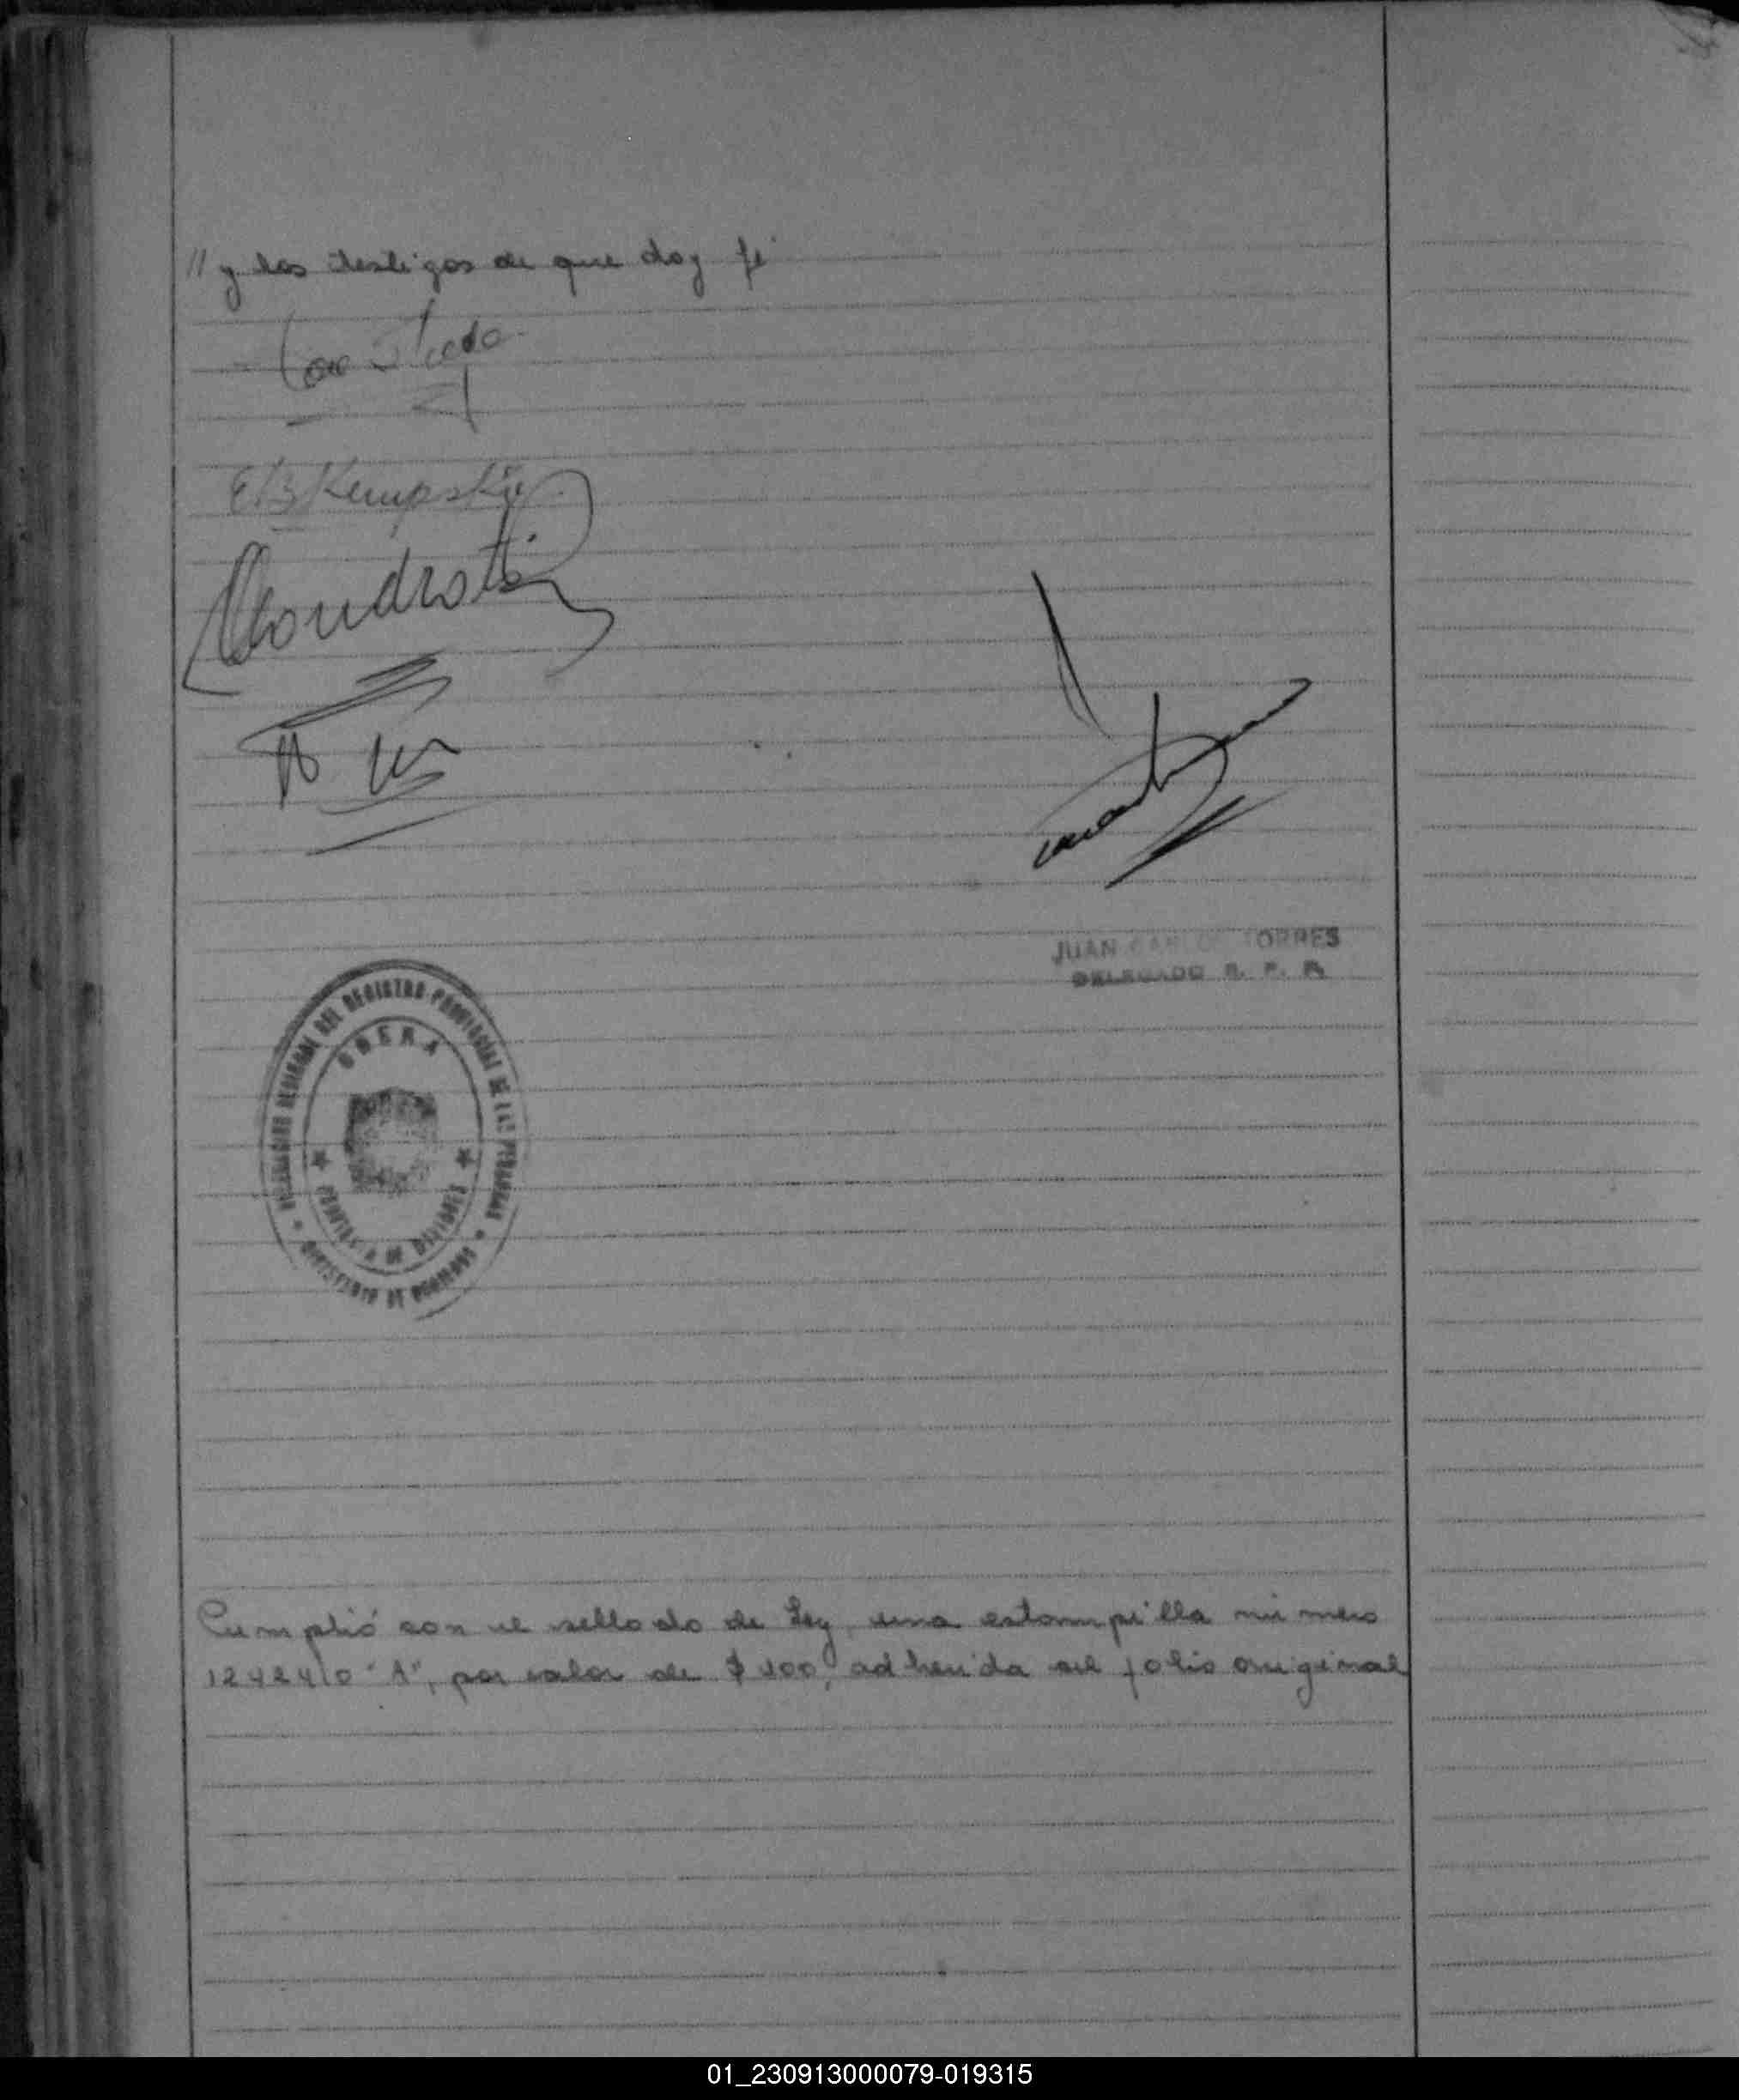 // y los testigos de que doy fé
E. B. Kempski
JUAN CARLOS TORRES
DELEGADO R. P. P.
DELEGACION REGIONAL DEL REGISTRO PROVINCIAL DE LAS PERSONAS
OBERA
PROVINCIA DE MISIONES
MINISTERIO DE GOBIERNO
Cumplió con el sellado de Ley, una estampilla número
1242410 "A", por valor de $ 100, adherida al folio original
01_230913000079-019315